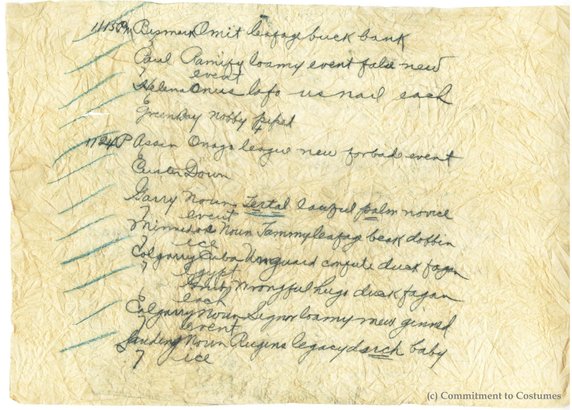 1113PM Bismark Omit leafage buck bank
Paul Ramify loamy event false new
event
Helena Onus lofo us nail each
Green Bay nobby piped
1124P Assin Onago league new forbad event
Cusler Down
Garry Noun Tertal lawful palm novice
event
Minnedos Noun Jammy leafage beak dobbin
ice
Calgarry Cuba Unguard confute duck fagan
Egypt
Wrongful hugo duck fagan
each
Calgarry Noun Signor loamy new ginned
event
Landing Noun Rugins legacy dsrch baby
ice
(c) Commitment to Costumes